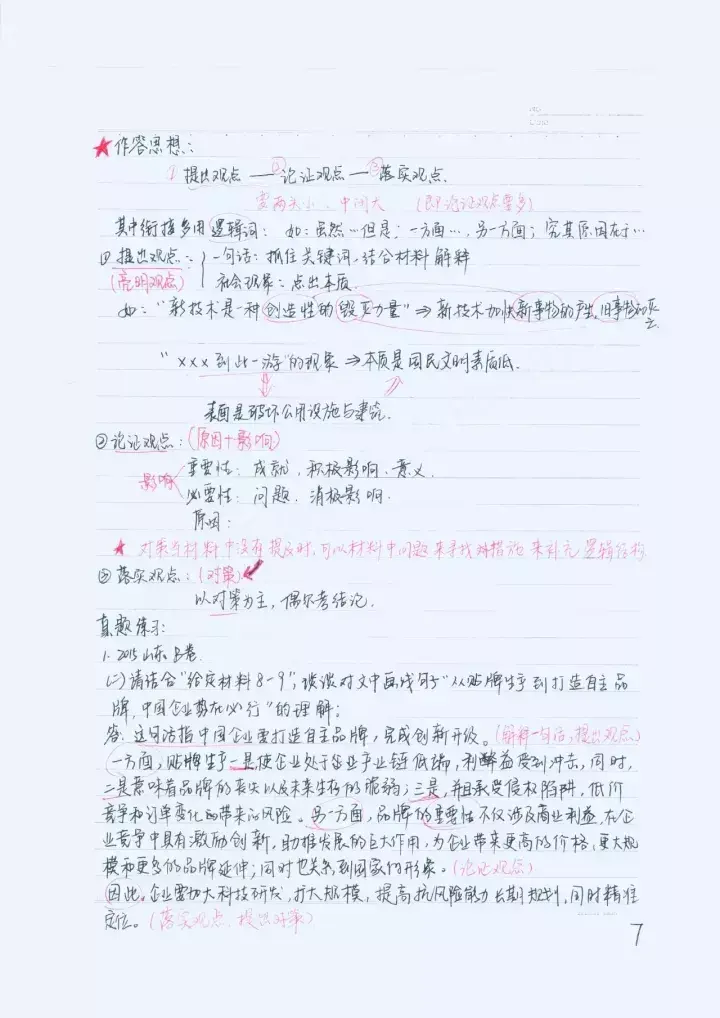 ★作答思想：
①提出观点 —②论证观点 —③落实观点.
要两头小、中间大 (即论证观点要多)
其中衔接多用逻辑词： 如：虽然…但是；一方面…，另一方面；究其原因在于…
①提出观点： 一句话：抓住关键词，结合材料解释
(亮明观点) 社会现象：点出本质.
如："新技术是一种创造性的毁灭力量"⇒新技术加快新事物的产生,旧事物的灭亡
"×××到此一游"的现象⇒本质是国民文明素质低.
表面是破坏公用设施与建筑.
②论证观点：(原因+影响)
影响 重要性：成就、积极影响、意义.
必要性：问题、消极影响.
原因：
★ 对策当材料中没有提及时,可以材料中问题来寻找对措施来补充逻辑结构
③落实观点：(对策)
以对策为主，偶尔考结论.
真题练习：
1. 2015山东B卷.
(二)请结合"给定材料8-9",谈谈对文中画线句子"从贴牌生产到打造自主品
牌,中国企业势在必行"的理解；
答：这句话指中国企业要打造自主品牌，完成创新升级。(解释一句话,提出观点)
一方面，贴牌生产一是使企业处于企业产业链低端，利润益受到冲击，同时，
二是意味着品牌的丧失以及未来生存的脆弱；三是，并且承受侵权陷阱，低价
竞争和订单变化的带来的风险。另一方面，品牌的重要性不仅涉及商业利益,在企
业竞争中具有激励创新，助推发展的巨大作用，为企业带来更高的价格，更大规
模和更多的品牌延伸；同时也关系到国家的形象。(论证观点)
因此，企业要加大科技研发，扩大规模，提高抗风险能力长期规划，同时精准
定位。(落实观点、提出对策)
7